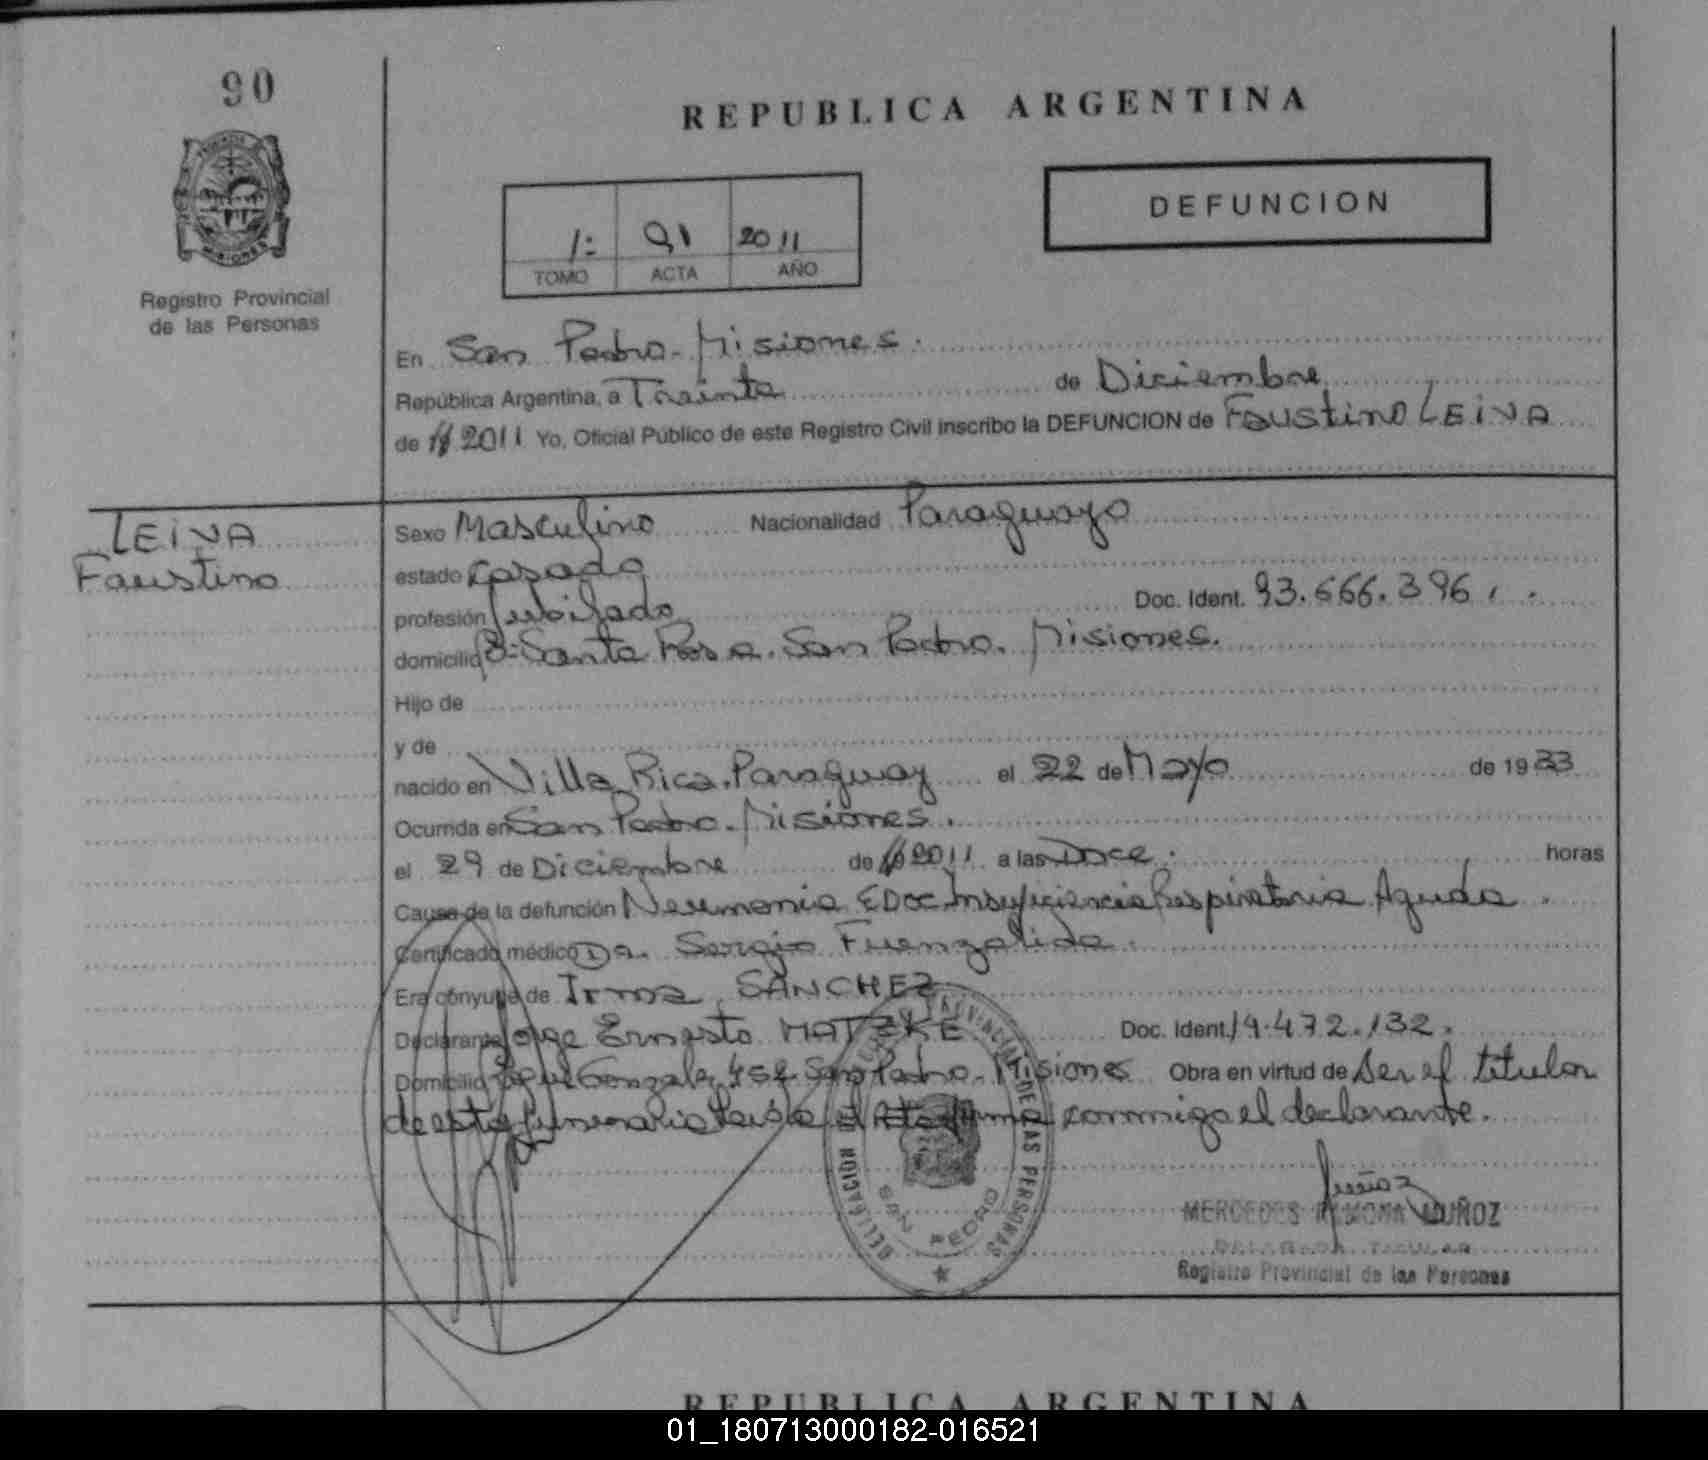 90
REPUBLICA ARGENTINA
DEFUNCION
1: 91 2011
TOMO ACTA AÑO
MISIONES
Registro Provincial
de las Personas
En San Pedro - Misiones.
República Argentina, a Treinta de Diciembre
de 2011 Yo, Oficial Público de este Registro Civil inscribo la DEFUNCION de Faustino LEIVA
LEIVA
Faustino
Sexo Masculino Nacionalidad Paraguayo
estado Casado
profesión Jubilado Doc. Ident. 93.666.396.
domicilio Bº Santa Rosa. San Pedro. Misiones.
Hijo de
y de
nacido en Villa Rica. Paraguay el 22 de Mayo de 1933
Ocurrida en San Pedro - Misiones.
el 29 de Diciembre de 2011 a las Doce. horas
Causa de la defunción Neumonia EDOC Insuficiencia Respiratoria Aguda.
Certificado médico Dr. Sergio Fuenzalida.
Era cónyuge de Irma SANCHEZ
Declarante Jorge Ernesto MATZKE Doc. Ident. 14.472.132.
Domicilio Gonzalez 452 San Pedro - Misiones Obra en virtud de Ser el titular
de esta funeraria Leida el Acta firma conmigo el declarante.
DELEGACION PROVINCIAL DE LAS PERSONAS
SAN PEDRO
Muñoz
MERCEDES RAMONA MUÑOZ
DELEGADA TITULAR
Registro Provincial de las Personas
REPUBLICA ARGENTINA
01_180713000182-016521